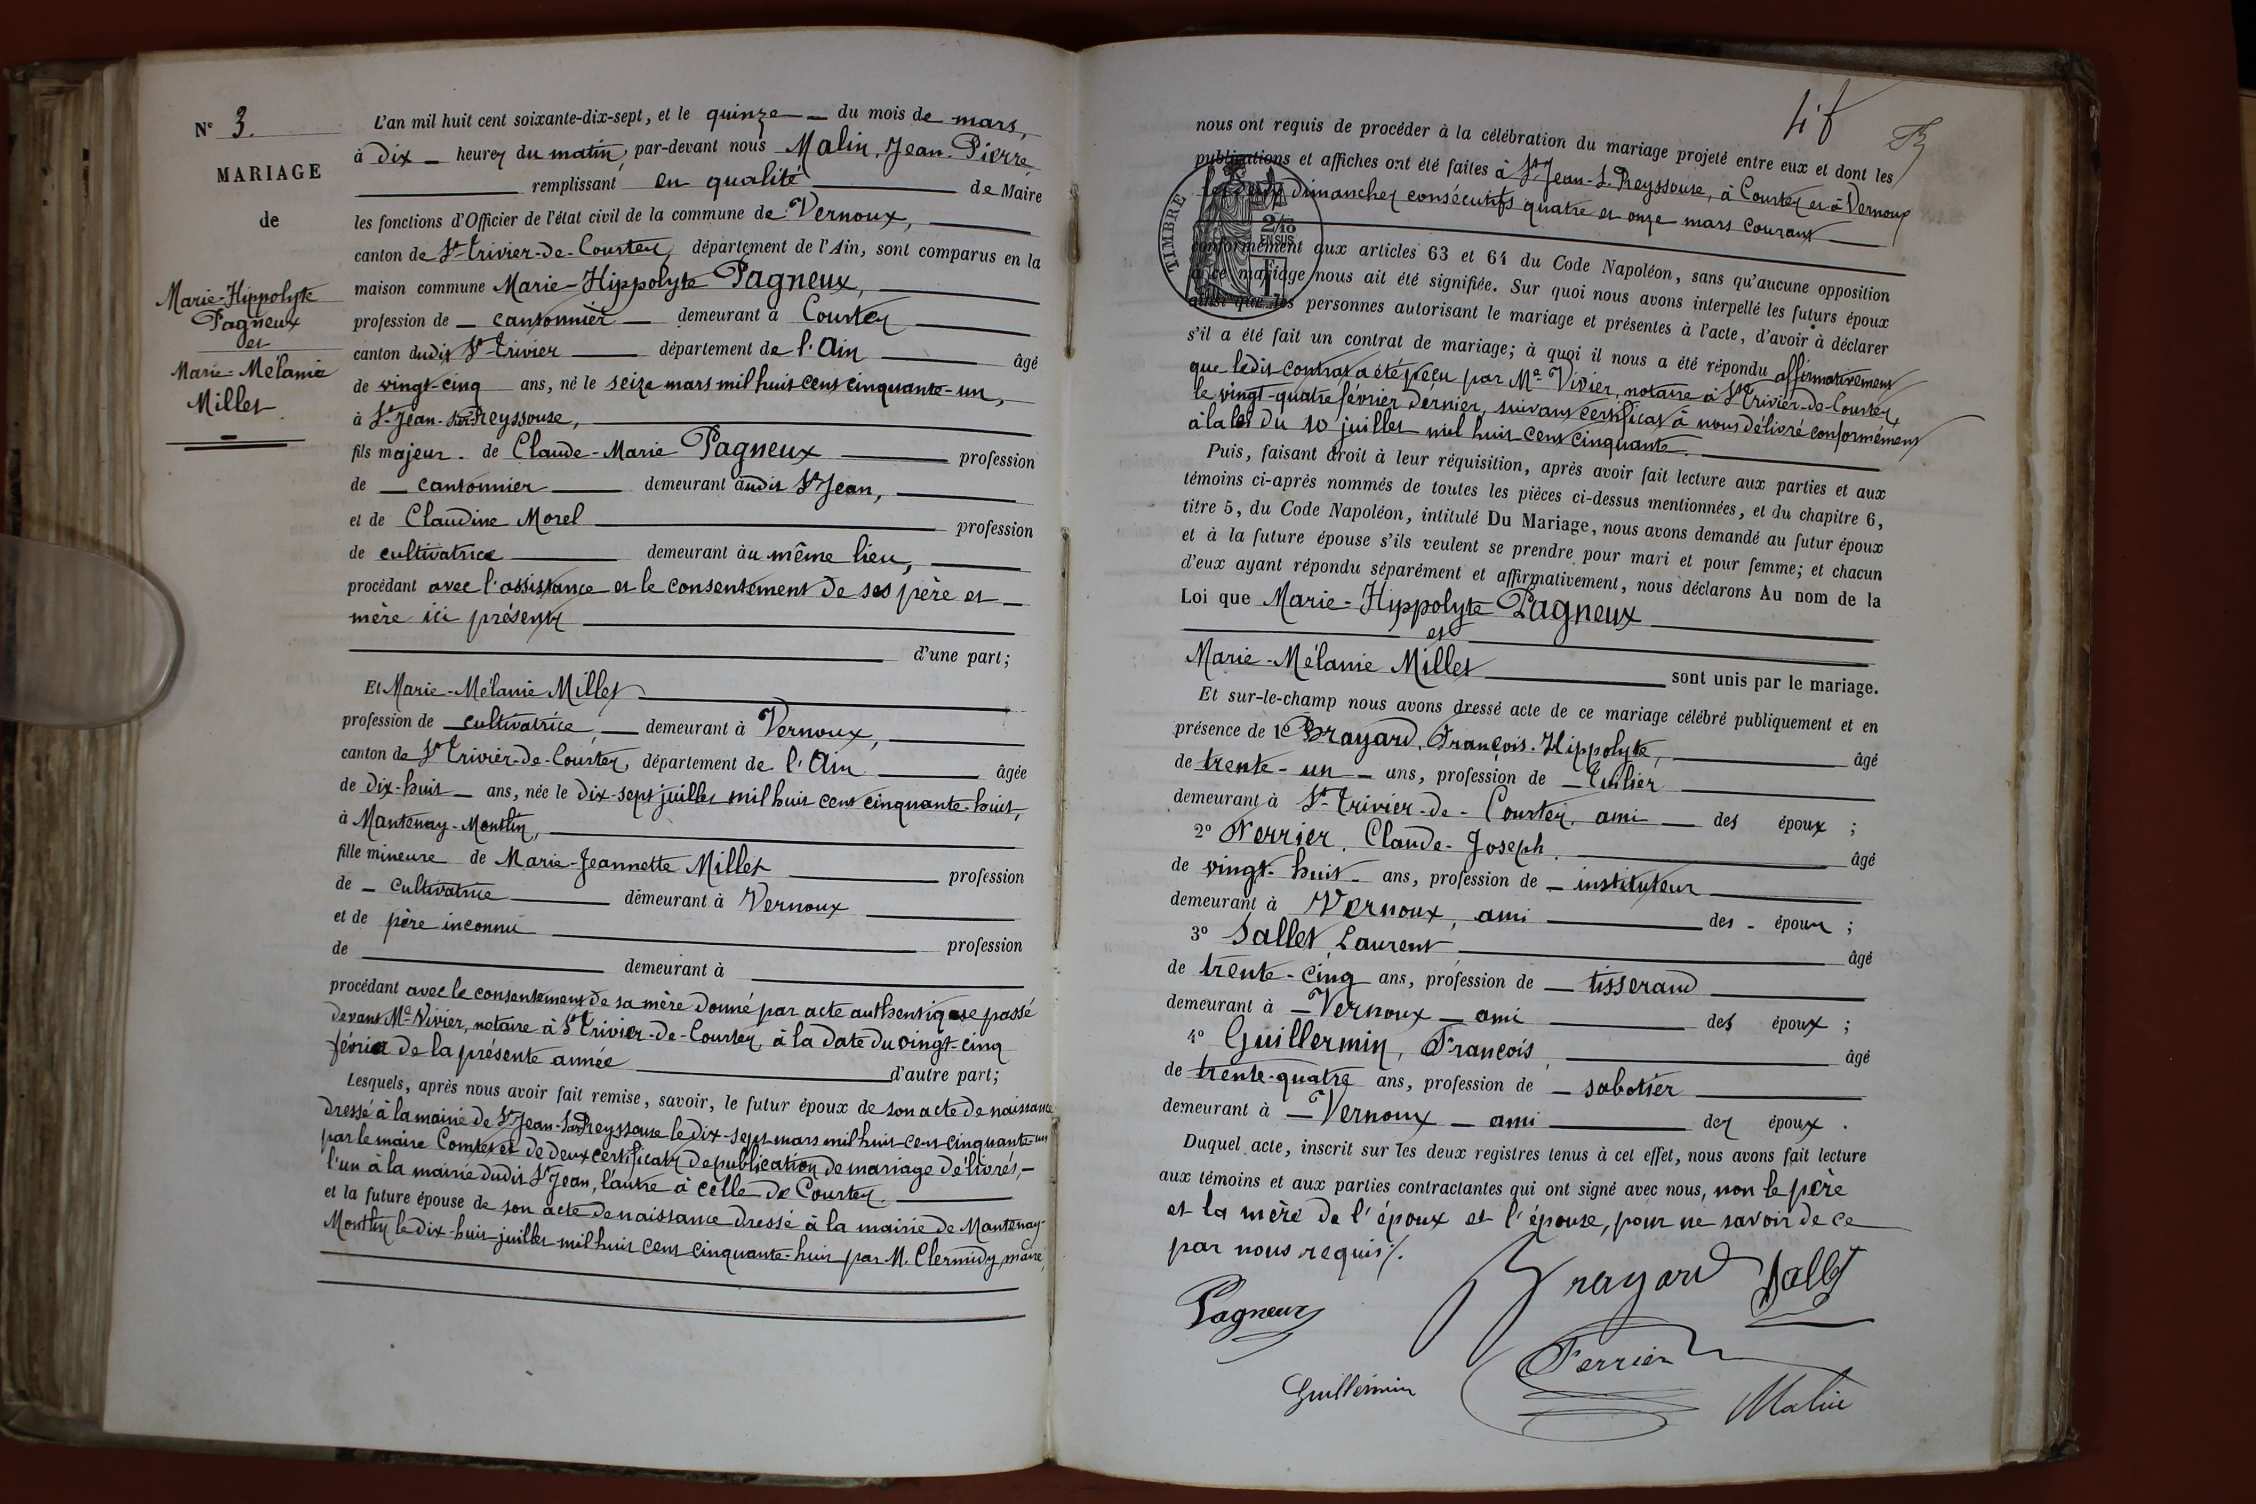 N° 3.
MARIAGE
de
Marie-Hippolyte
Pagneux
et
Marie-Mélanie
Millet
L'an mil huit cent soixante-dix-sept, et le quinze du mois de mars,
à dix heures du matin, par-devant nous Malin, Jean-Pierre
remplissant en qualité de Maire
les fonctions d'Officier de l'état civil de la commune de Vernoux,
canton de St Trivier-de-Courtes, département de l'Ain, sont comparus en la
maison commune Marie-Hippolyte Pagneux,
profession de cantonnier demeurant à Courtes
canton dudit St Trivier département de l'Ain âgé
de vingt-cinq ans, né le seize mars mil huit cent cinquante-un,
à St Jean-sur-Reyssouse,
fils majeur de Claude-Marie Pagneux profession
de cantonnier demeurant audit St Jean,
et de Claudine Morel profession
de cultivatrice demeurant au même lieu,
procédant avec l'assistance et le consentement de ses père et
mère ici présents
d'une part;
Et Marie-Mélanie Millet
profession de cultivatrice, demeurant à Vernoux,
canton de St Trivier-de-Courtes, département de l'Ain âgée
de dix-huit ans, née le dix-sept juillet mil huit cent cinquante-huit,
à Mantenay-Montlin,
fille mineure de Marie-Jeannette Millet profession
de cultivatrice demeurant à Vernoux
et de père inconnu profession
de demeurant à
procédant avec le consentement de sa mère donné par acte authentique passé
devant Me Vivier, notaire à St Trivier-de-Courtes, à la date du vingt-cinq
février de la présente année d'autre part;
Lesquels, après nous avoir fait remise, savoir, le futur époux de son acte de naissance
dressé à la mairie de St Jean-sur-Reyssouse le dix-sept mars mil huit cent cinquante-un
par le maire Comtet et de deux certificats de publication de mariage délivrés,
l'un à la mairie dudit St Jean, l'autre à celle de Courtes.
et la future épouse de son acte de naissance dressé à la mairie de Mantenay-
Montlin le dix-huit juillet mil huit cent cinquante-huit par M. Clermidy, maire,
4 f
nous ont requis de procéder à la célébration du mariage projeté entre eux et dont les
publications et affiches ont été faites à St Jean-s-Reyssouse, à Courtes et à Vernoux
les deux dimanches consécutifs quatre et onze mars courant
TIMBRE
2/10
EN SUS
conformément aux articles 63 et 64 du Code Napoléon, sans qu'aucune opposition
à ce mariage nous ait été signifiée. Sur quoi nous avons interpellé les futurs époux
ainsi que les personnes autorisant le mariage et présentes à l'acte, d'avoir à déclarer
s'il a été fait un contrat de mariage; à quoi il nous a été répondu affirmativement
que ledit contrat a été reçu par Me Vivier, notaire à St Trivier-de-Courtes,
le vingt-quatre février dernier, suivant certificat à nous délivré conformément
à la loi du 10 juillet mil huit cent cinquante.
Puis, faisant droit à leur réquisition, après avoir fait lecture aux parties et aux
témoins ci-après nommés de toutes les pièces ci-dessus mentionnées, et du chapitre 6,
titre 5, du Code Napoléon, intitulé Du Mariage, nous avons demandé au futur époux
et à la future épouse s'ils veulent se prendre pour mari et pour femme; et chacun
d'eux ayant répondu séparément et affirmativement, nous déclarons Au nom de la
Loi que Marie-Hippolyte Pagneux
et
Marie-Mélanie Millet sont unis par le mariage.
Et sur-le-champ nous avons dressé acte de ce mariage célébré publiquement et en
présence de 1° Brayard, François-Hippolyte, âgé
de trente-un ans, profession de tuilier
demeurant à St Trivier-de-Courtes, ami des époux ;
2° Verrier, Claude-Joseph, âgé
de vingt-huit ans, profession de instituteur
demeurant à Vernoux, ami des époux ;
3° Sallet Laurent âgé
de trente-cinq ans, profession de tisserand
demeurant à Vernoux ami des époux ;
4° Guillermin, François, âgé
de trente-quatre ans, profession de sabotier
demeurant à Vernoux ami des époux.
Duquel acte, inscrit sur les deux registres tenus à cet effet, nous avons fait lecture
aux témoins et aux parties contractantes qui ont signé avec nous, non le père
et la mère de l'époux et l'épouse, pour ne savoir de ce
par nous requis.
Pagneux
Brayard
Sallet
Guillermin
Ferrier
Malin